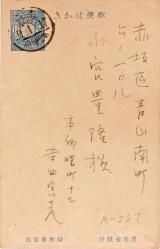 郵便はかき
赤坂區青山南町
六ノ一〇八
小宮豊隆様
本郷曙町十三
寺田寅彦
A-227